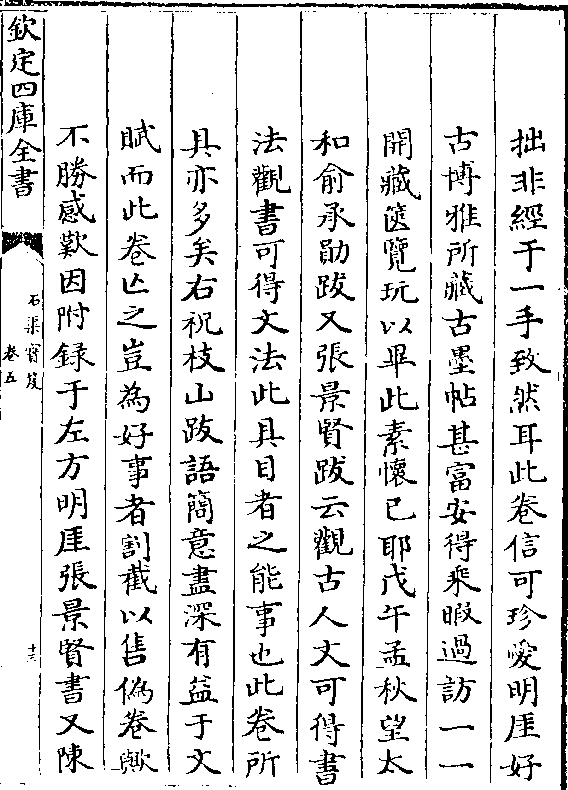 拙非經于一手致然耳此卷信可珍愛明厓好
古博雅所藏古墨帖甚富安得乘暇過訪一一
開藏篋覽玩以畢此素懷已耶戊午孟秋望太
和俞承勛跋又張景賢跋云觀古人文可得書
法觀書可得文法此具目者之能事也此卷所
具亦多矣右祝枝山跋語簡意盡深有益于文
賦而此卷亡之豈為好事者割截以售偽卷歟
不勝感歎因附録于左方明厓張景賢書又陳
欽定四庫全書
石渠寶笈
卷五
十三